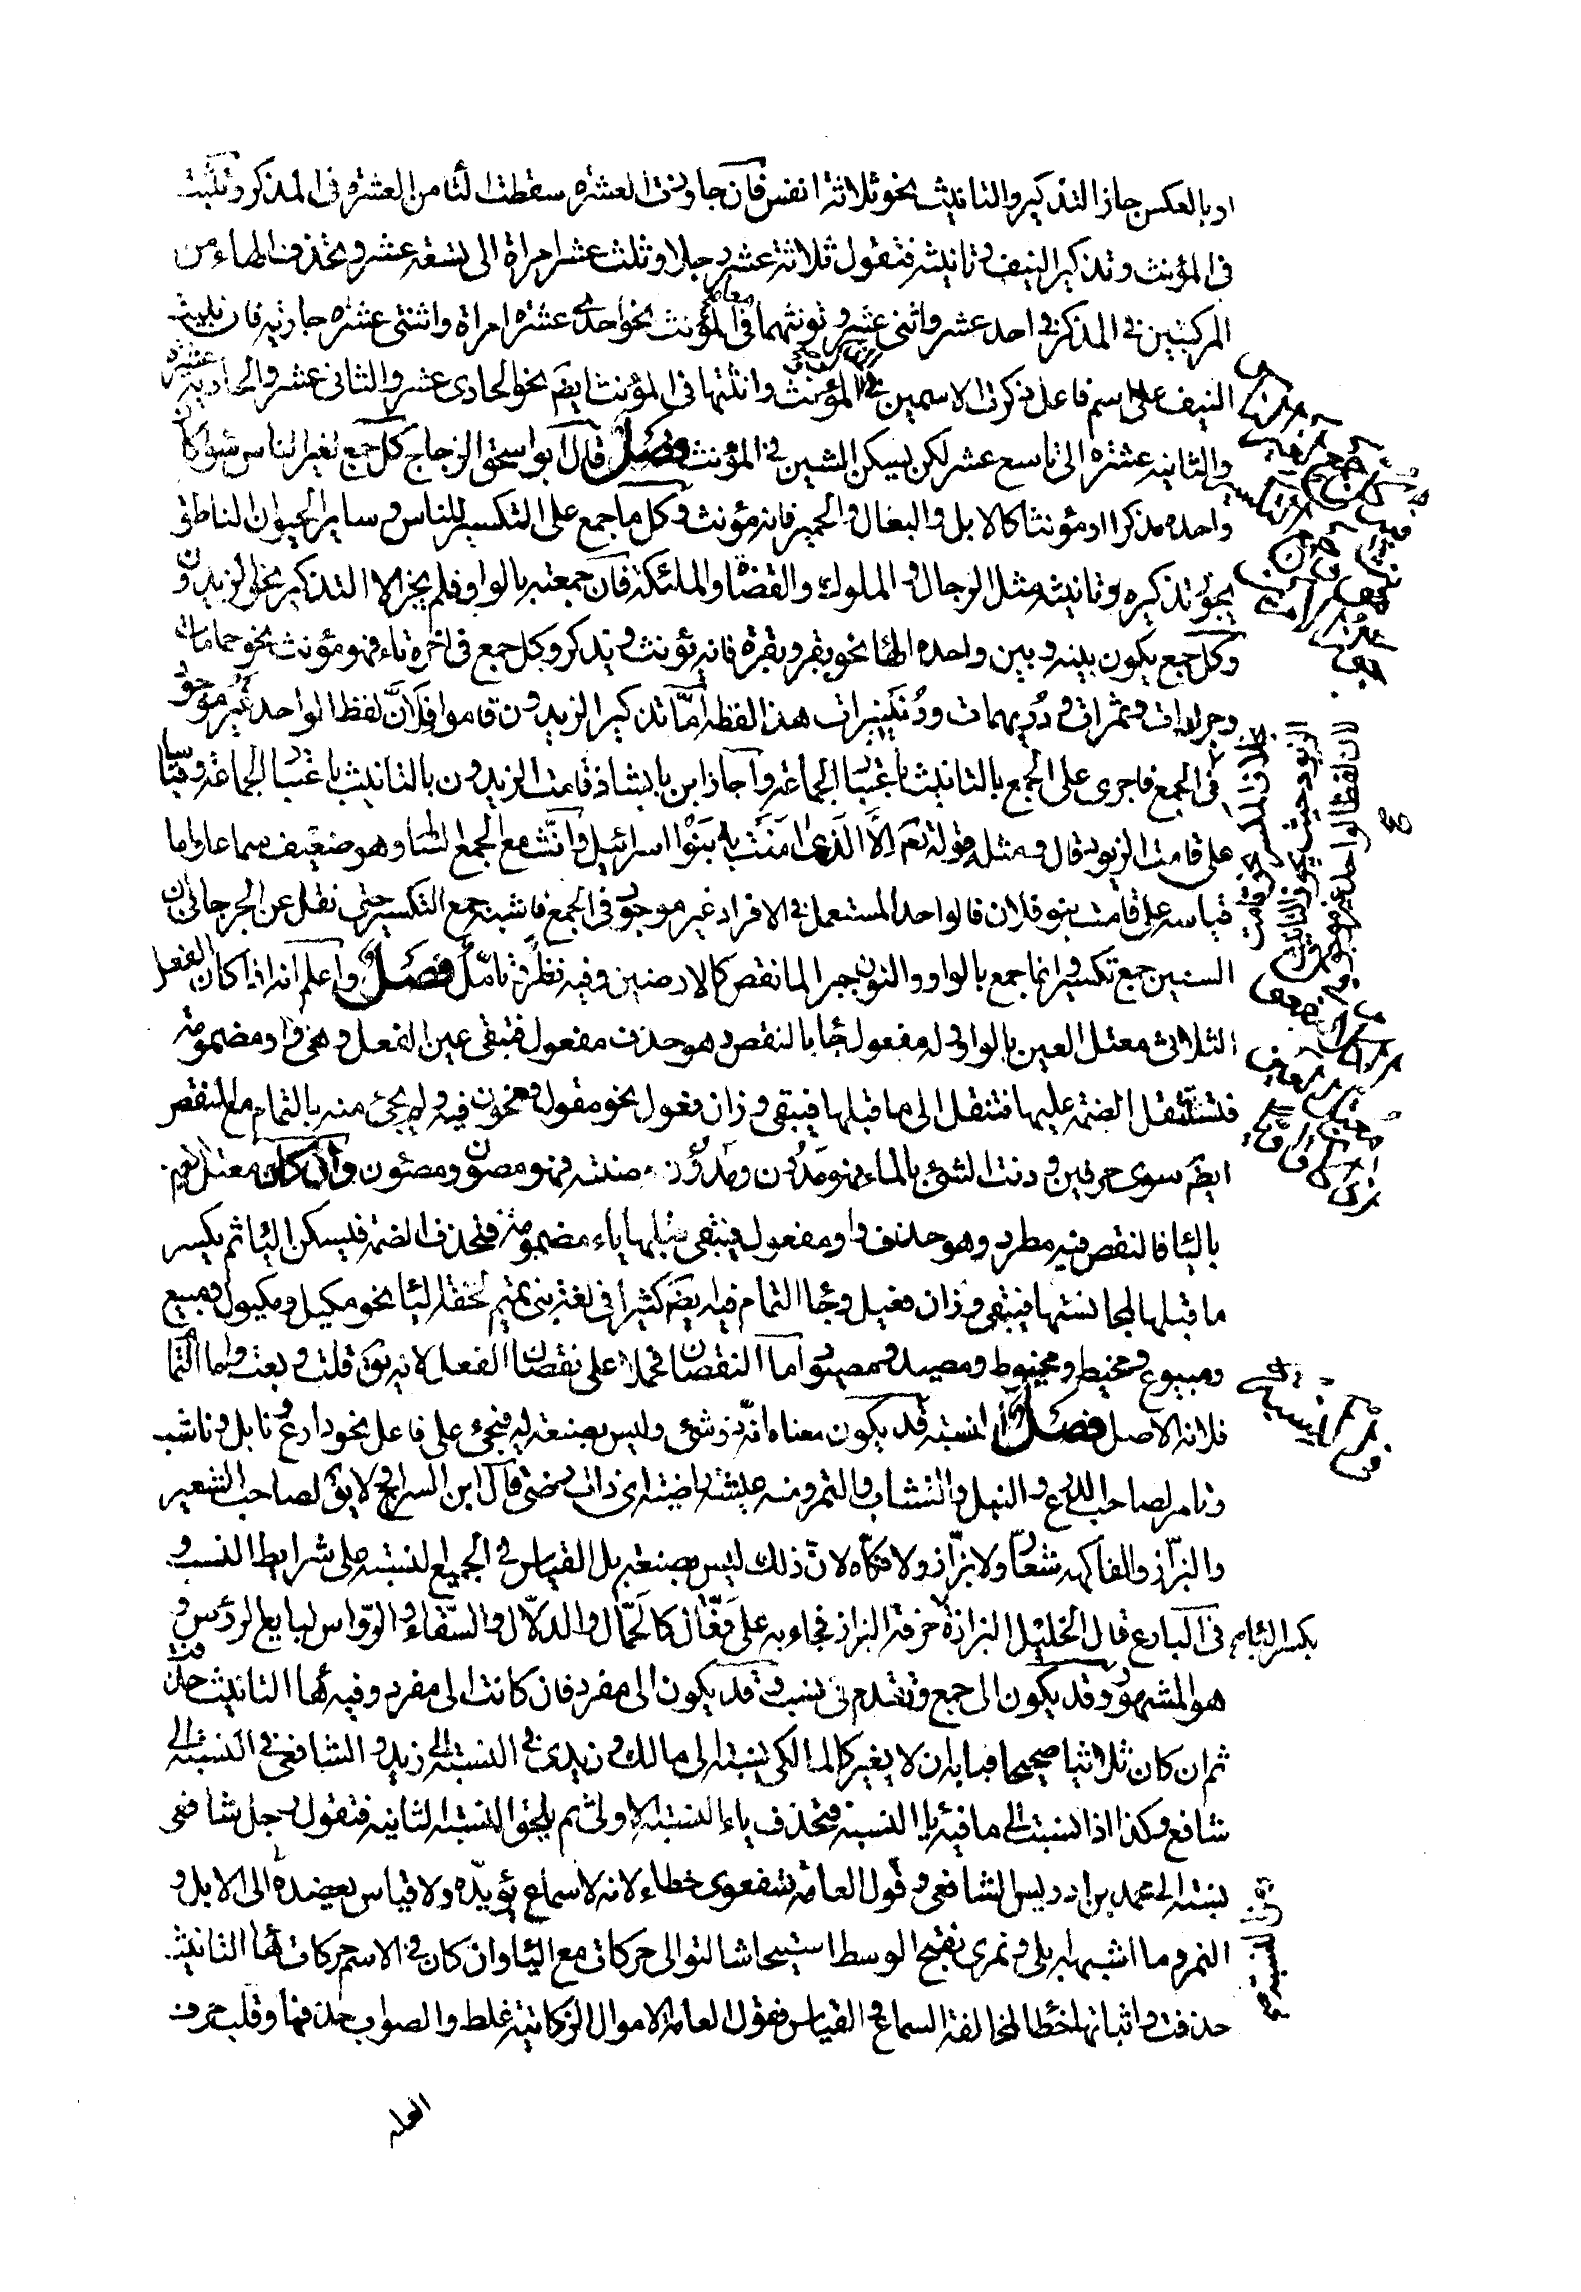 او بالعكس جاز التذكير والتانيث نحو ثلاثة انفس فان جاوزت العشره سقطت التا من العشره فى المذكر وثبتت
فى المؤنث وتذكير النيف وتانيثه فتقول ثلاثة عشر رجلا وثلث عشر امراة الى تسعة عشر وتحذف الهاء من
المركبين فى المذكر فى احد عشر واثنى عشر وتونثهما معا فى المؤنث نحو احدى عشره امراة واثنتى عشره جارية فان بنيت
النيف على اسم فاعل ذكرت الاسمين فى المؤنث وانثتها فى المؤنث ايضَ نحو الحادى عشر والثانى عشر والحادية عشره
والثانية عشره الى تاسع عشر لكن يسكن الشين فى المؤنث فصل قال ابو اسحق الزجاج كل جمع لغير الناس سواء كان
واحده مذكرا او مؤنثا كالابل والبغال والحمير فانه مؤنث وكل ما جمع على التكسير للناس وساير الحيوان الناطق
يجوز تذكيره وتانيثه مثل الرجال والملوك والقضاة والملئكة فان جمعته بالواو فلم يجز الا التذكير نحو الزيدون
وكل جمع يكون بينه وبين واحده الهاء نحو بقر وبقرة فانه يؤنث ويذكر وكل جمع فى اخره تاء فهو مؤنث نحو حمامات
وجرادات وتمرات ودريهمات ودنينيرات هذا لفظه اما تذكير الزيدون قاموا فلان لفظ الواحد غير موجود
فى الجمع فاجرى على الجمع بالتانيث باعتبار الجماعة واجاز ابن بابشاذ قامت الزيدون بالتانيث باعتبار الجماعة وقياسا
على قامت الزيود قال ومثله قوله تعم الا الذى امنت به بنوا اسرائيل فانث مع الجمع السالم وهو ضعيف سماعا واما
قياسه على قامت بنو فلان فالواحد المستعمل فى الافراد غير موجود فى الجمع فاشبه جمع التكسير حتى نقل عن الجرجانى ان
السنين جمع تكسير وانما جمع بالواو والنون جبرا لما نقص كالارضين وفيه نظر تامل فصل واعلم انه اذا كان الفعل
الثلاثى معتل العين بالواو فى له مفعول جاء بالنقص وهو حذف مفعول فتبقى عين الفعل وهى واو مضمومة
فتستثقل الضمة عليها فتنقل الى ما قبلها فيبقى وزان فعول نحو مقول ومخون فيه ولم يجئ منه بالتمام مع النقص
ايضَ سوى حرفين دنت الشئ بالماء فهو مدوف ومدووف وصنته فهو مصون ومصوون وان كان معتل العين
بالياء فالنقص فيه مطرد وهو حذف واو مفعول فيبقى قبلها ياء مضمومة فتحذف الضمة فيسكن الياء ثم يكسر
ما قبلها لمجانستها فيبقى وزان فعيل وجاء التمام فيه ايضَ كثيرا فى لغة بنى تميم لخفة الياء نحو مكيل ومكيول ومبيع
ومبيوع ومخيط ومخيوط ومصيد ومصيود اما النقصان فحملا على نقصان الفعل لانه يق قلت وبعت واما التمام
فلانه الاصل فصل النسبة قد يكون معناه انه ذو شئ وليس بصنعة له فيجئ على فاعل نحو دارع ونابل وناشب
وتامر لصاحب الدرع والنبل والنشاب والتمر ومنه عيشة راضية اى ذات رضى قال ابن السراج ولا يق لصاحب الشعير
والبزاز والفاكهة شعار ولا بزاز ولا فكاه لان ذلك ليس بصنعة بل القياس فى الجميع النسبة على شرايط النسب و
فى البارع قال الخليل البزازة بكسر الباء حرفة البزاز فجاء به على فعال كالحمال والدلال والسقاء والرواس لبايع الرؤس و
هو المشهور وقد يكون الى جمع وتقدم فى نسب وقد يكون الى مفرد فان كانت الى مفرد وفيه هاء التانيث حذفت
ثم ان كان ثلاثيا صحيحا فبابه ان لا يغير كالمالكى نسبة الى مالك وزيدى فى النسبة الى زيد والشافعى فى النسبة الى
شافع وكذا اذا نسبت الى ما فيه ياء النسبة فتحذف ياء النسبة الاولى ثم يلحق النسبة الثانية فتقول رجل شافعى
نسبة الى محمد بن ادريس الشافعى وقول العامة شفعوى خطاء لانه لا سماع يؤيده ولا قياس يعضده الى الابل و
النمر وما اشبهه ابلى ونمرى بفتح الوسط استيحاشا لتوالى حركات مع الياء وان كان فى الاسم حركات هاء التانيث
حذفت واثباتها خطا لمخالفة السماع والقياس فقول العامة الاموال الزكاتية غلط والصواب حذفها وقلب حرف
خلاف المكسر نحو قامت
الزيود حيث يجوز التانيث
لان لفظ الواحد غير موجود فيه
فى النسبة
العلة